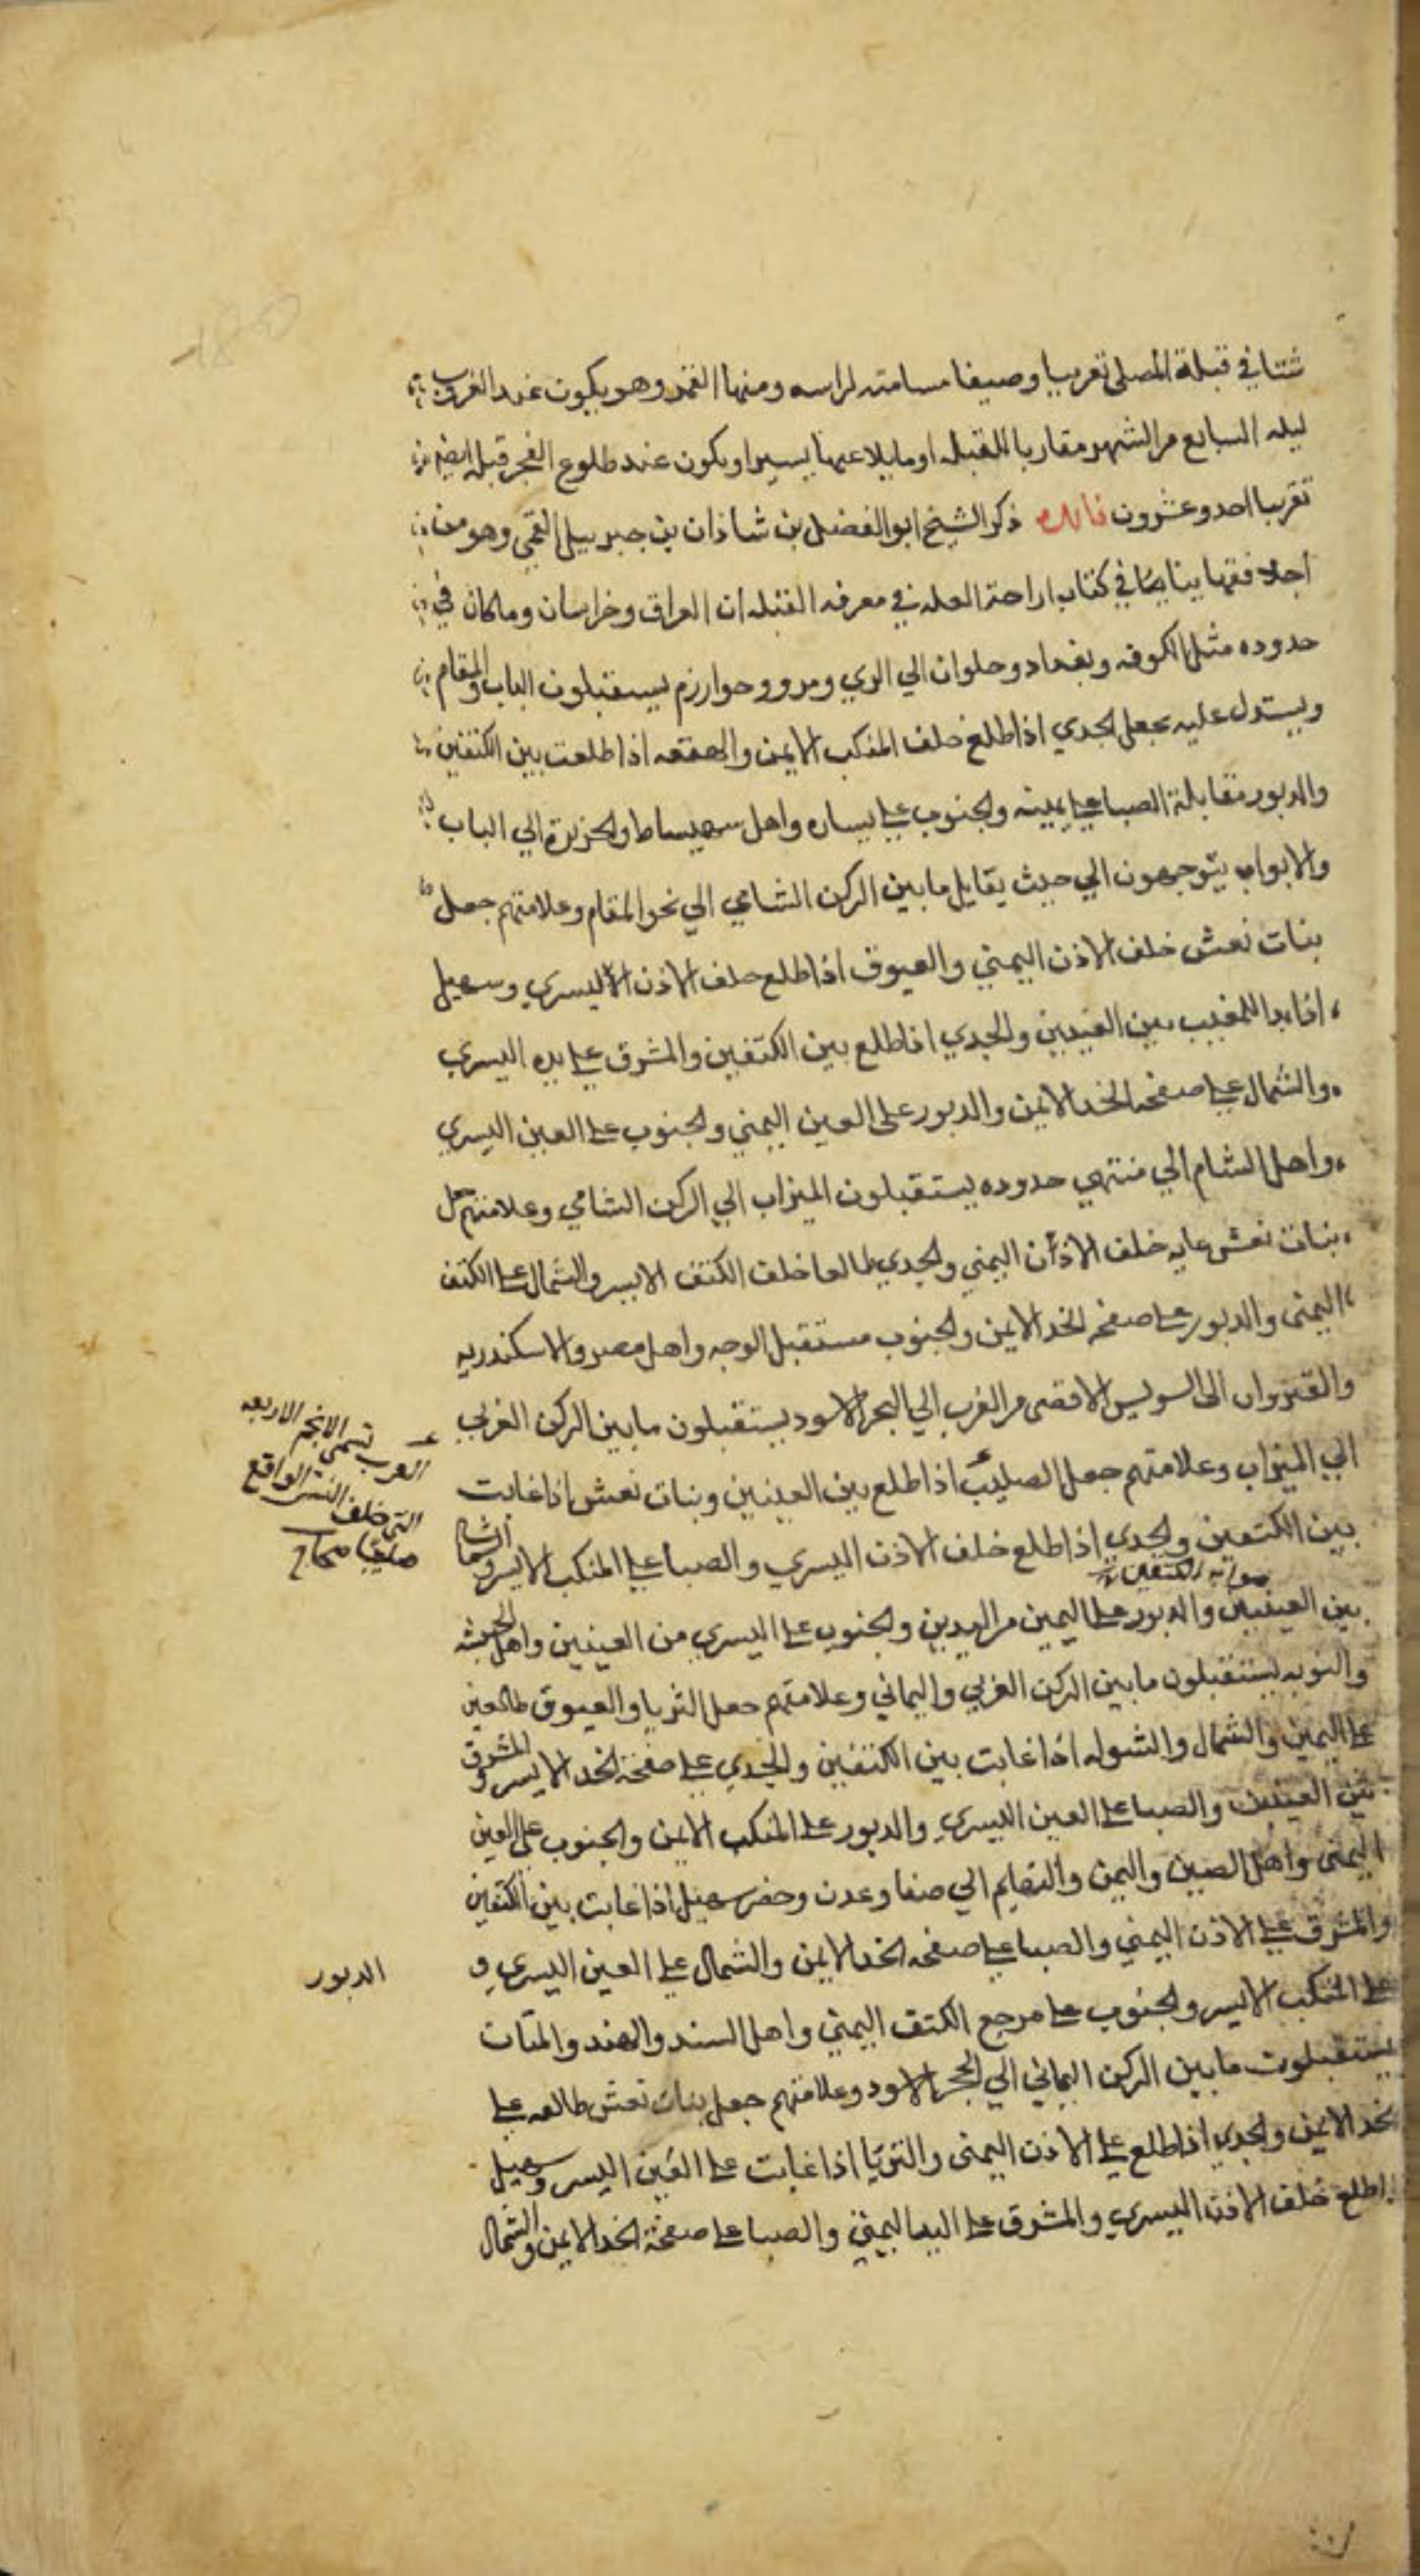 شتا في قبلة المصلى تقريبا وصيفا مسامته لراسه ومنها القمر وهو يكون عند الغروب
ليله السابع من الشهر مقاربا للقبله او مايلا عنها يسيرا ويكون عند طلوع الفجر قبله ايضا
تقريبا احد وعشرون فايده ذكر الشيخ ابو الفضل بن شاذان بن جبرييل القمي وهو من
اجلا فقهاينا في كتاب ازاحة العله في معرفه القبله ان العراق وخراسان وما كان في
حدوده مثل الكوفه وبغداد وحلوان الي الري ومرو وخوارزم يستقبلون الباب والمقام
ويستدل عليه بجعل الجدي اذا طلع خلف المنكب الايمن والهقعه اذا طلعت بين الكتفين
والدبور مقابلة الصبا علي يمينه والجنوب علي يساره واهل سميساط والجزيرة الي الباب
والابواب يتوجهون الي حيث يقابل ما بين الركن الشامي الي نحو المقام وعلامتهم جعل
بنات نعش خلف الاذن اليمني والعيوق اذا طلع خلف الاذن اليسري وسهيل
اذا بدا للمغيب بين العينين والجدي اذا طلع بين الكتفين والمشرق علي يده اليسري
والشمال علي صفحه الخد الايمن والدبور على العين اليمني والجنوب علي العين اليسري
واهل الشام الي منتهي حدوده يستقبلون الميزاب الي الركن الشامي وعلامتهم جعل
بنات نعش غايبه خلف الاذن اليمني والجدي طالعا خلف الكتف الايسر والشمال علي الكتف
اليمنى والدبور علي صفحه الخد الايمن والجنوب مستقبل الوجه واهل مصر والاسكندريه
والقيروان الى السويس الاقصى من الغرب الي البحر الاسود يستقبلون ما بين الركن الغربي
الي الميزاب وعلامتهم جعل الصليب اذا طلع بين العينين وبنات نعش اذا غابت
بين الكتفين والجدي اذا طلع خلف الاذن اليسري والصبا علي المنكب الايسر والشمال
صوابه الكتفين
بين العينين والدبور علي اليمين من اليدين والجنوب علي اليسري من العينين واهل الحبشه
والنوبه يستقبلون ما بين الركن الغربي واليماني وعلامتهم جعل الثريا والعيوق طالعين
علي اليمين والشمال والشوله اذا غابت بين الكتفين والجدي علي صفحة الخد الايسر والمشرق
بين العينين والصبا علي العين اليسري والدبور علي المنكب الايمن والجنوب على العين
اليمنى واهل الصين واليمن والتهايم الي صنعا وعدن وحضر سهيل اذا غابت بين الكتفين
والمشرق علي الاذن اليمني والصبا علي صفحه الخد الايمن والشمال علي العين اليسري و
علي المنكب الايسر والجنوب علي مرجع الكتف اليمني واهل السند والهند والملتان
يستقبلون ما بين الركن اليماني الي الحجر الاسود وعلامتهم جعل بنات نعش طالعه علي
الخد الايمن والجدي اذا طلع علي الاذن اليمنى والثريا اذا غابت علي العين اليسر وسهيل
اذا طلع خلف الاذن اليسري والمشرق علي اليد اليمني والصبا علي صفحة الخد الايمن والشمال
العرب تسمى الانجم الاربعه
التي خلف النسر الواقع
صليبا صحاح
الدبور